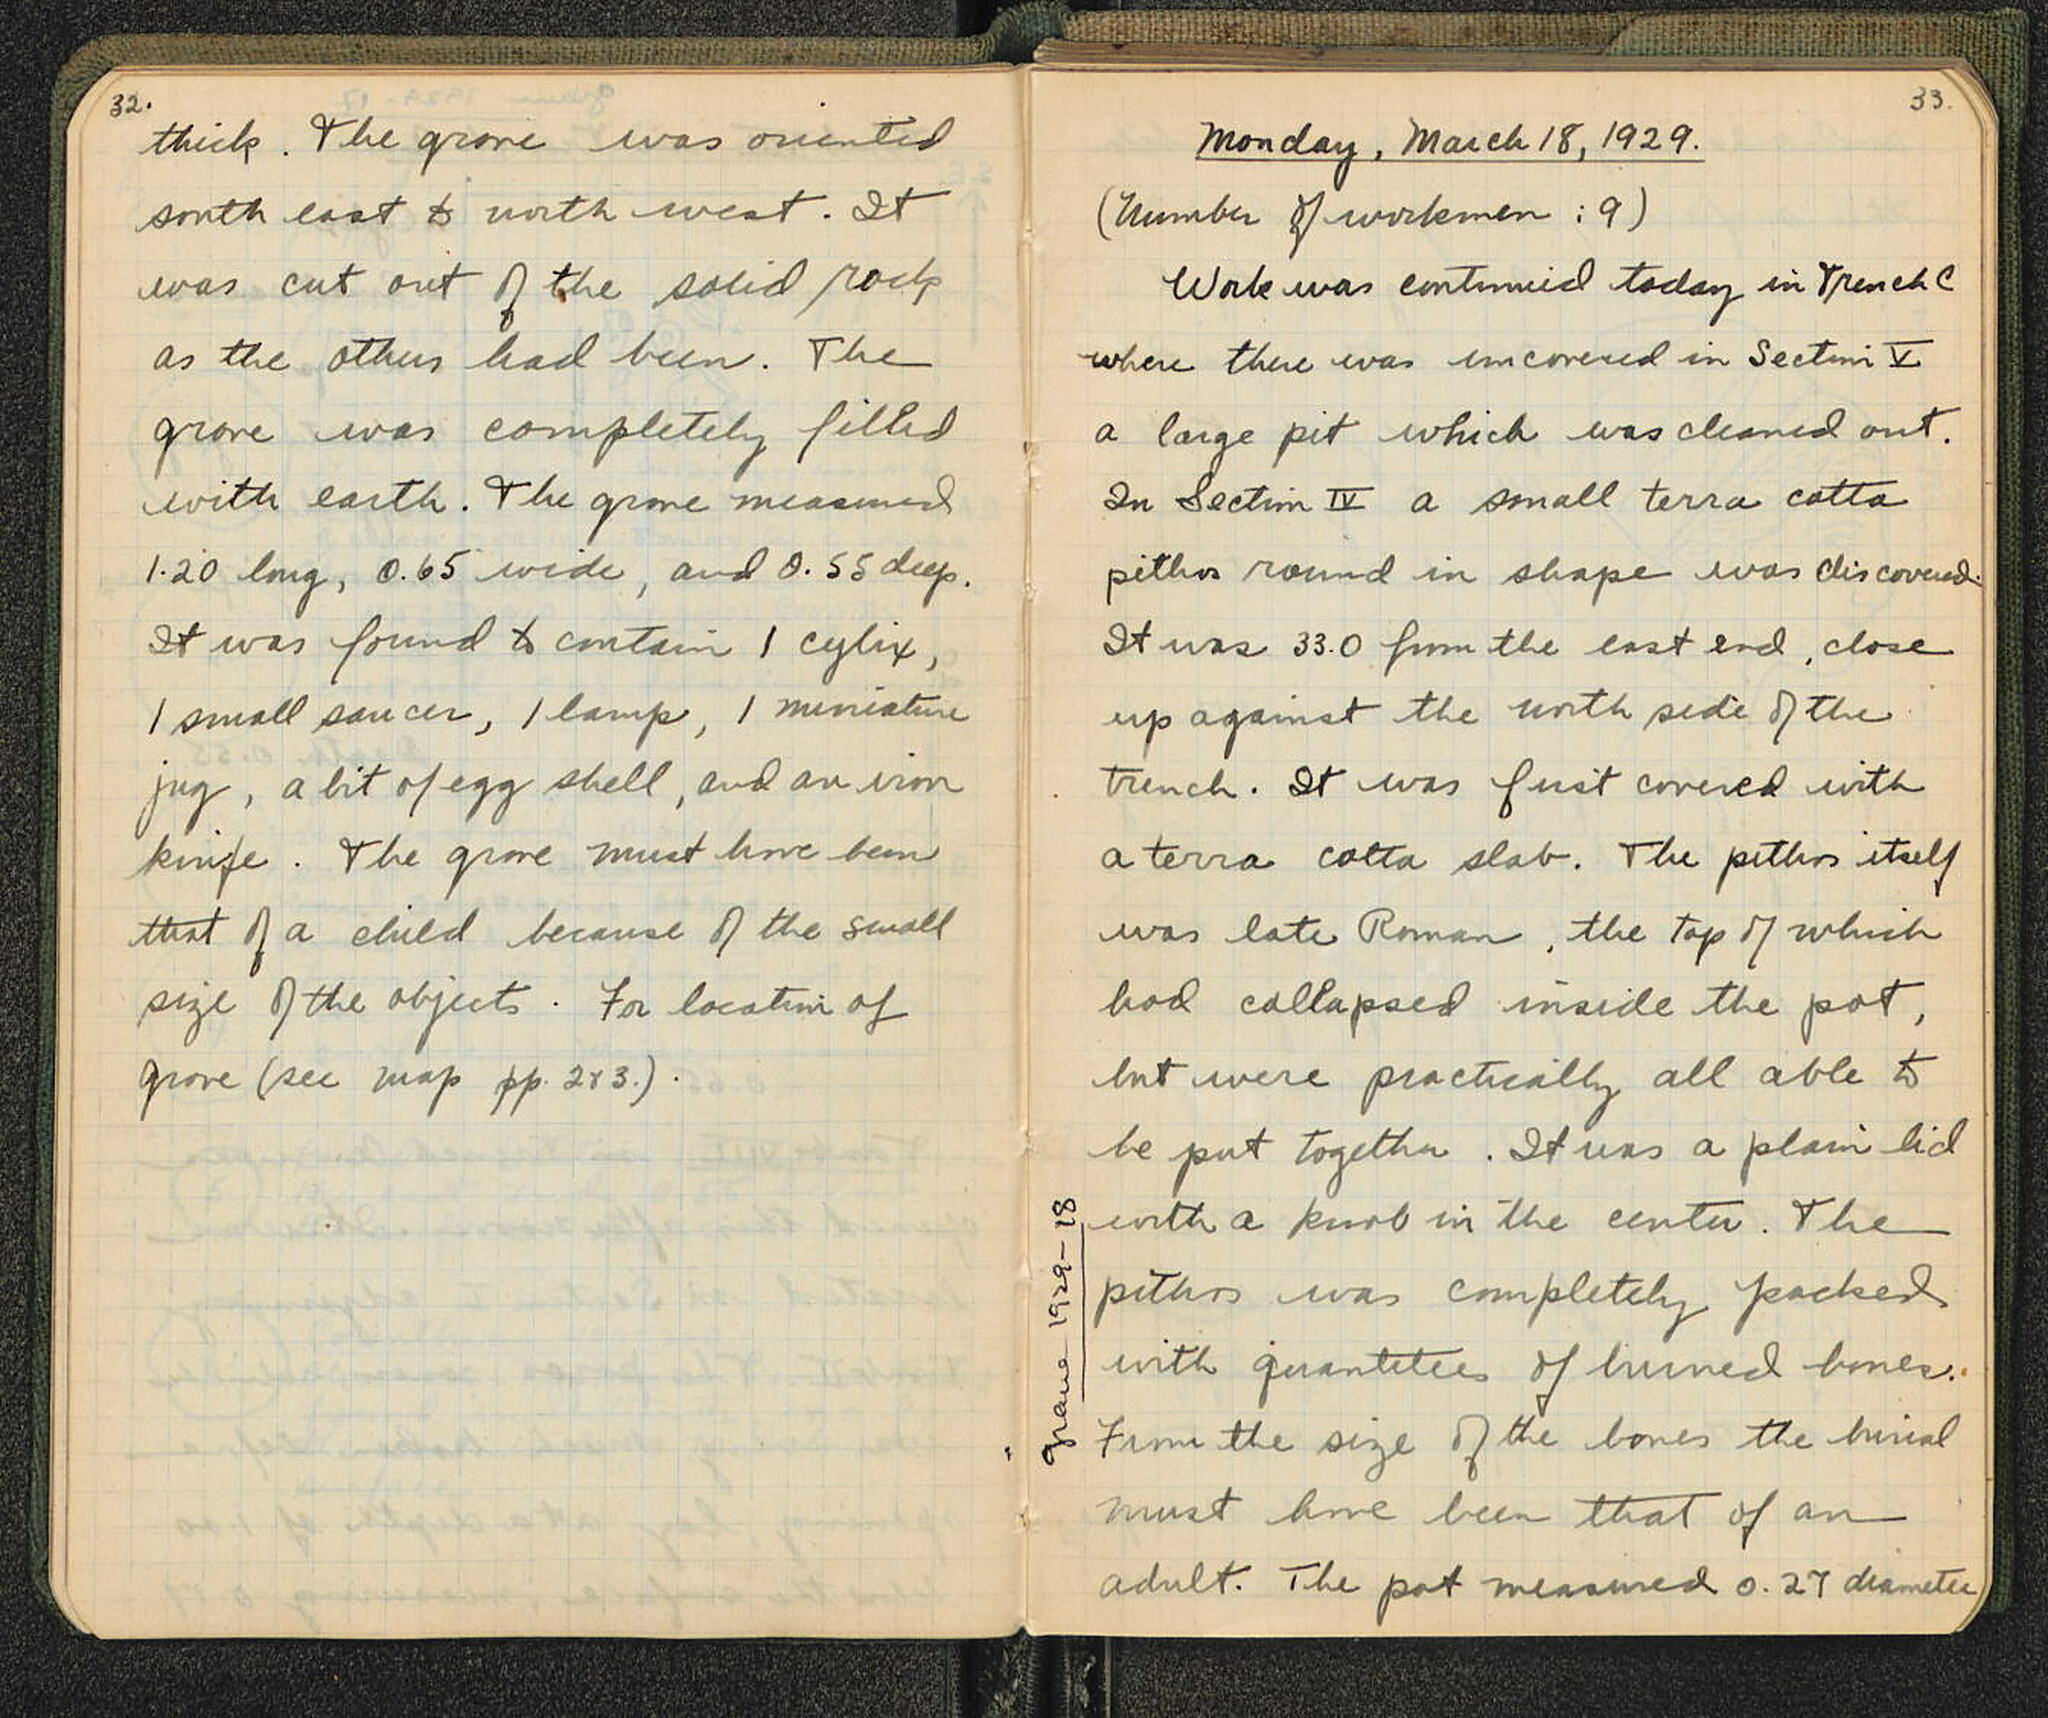 32.
thick. The grave was oriented
south east to north west. It
was cut out of the solid rock
as the others had been. The
grave was completely filled
with earth. The grave measured
1.20 long, 0.65 wide, and 0.55 deep.
It was found to contain 1 cylix,
1 small saucer, 1 lamp, 1 miniature
jug, a bit of egg shell, and an iron
knife. The grave must have been
that of a child because of the small
size of the objects. For location of
grave (see map pp. 2 & 3.).
33.
Monday, March 18, 1929.
(Number of workmen : 9)
Work was continued today in Trench C
where there was uncovered in Section V
a large pit which was cleaned out.
In Section IV a small terra cotta
pithos round in shape was discovered.
It was 33.0 from the east end, close
up against the north side of the
trench. It was first covered with
a terra cotta slab. The pithos itself
was late Roman, the top of which
had collapsed inside the pot,
but were practically all able to
be put together. It was a plain lid
with a knob in the center. The
pithos was completely packed
with quantities of burned bones.
From the size of the bones the burial
must have been that of an
adult. The pot measured 0.27 diameter
Grave 1929-18